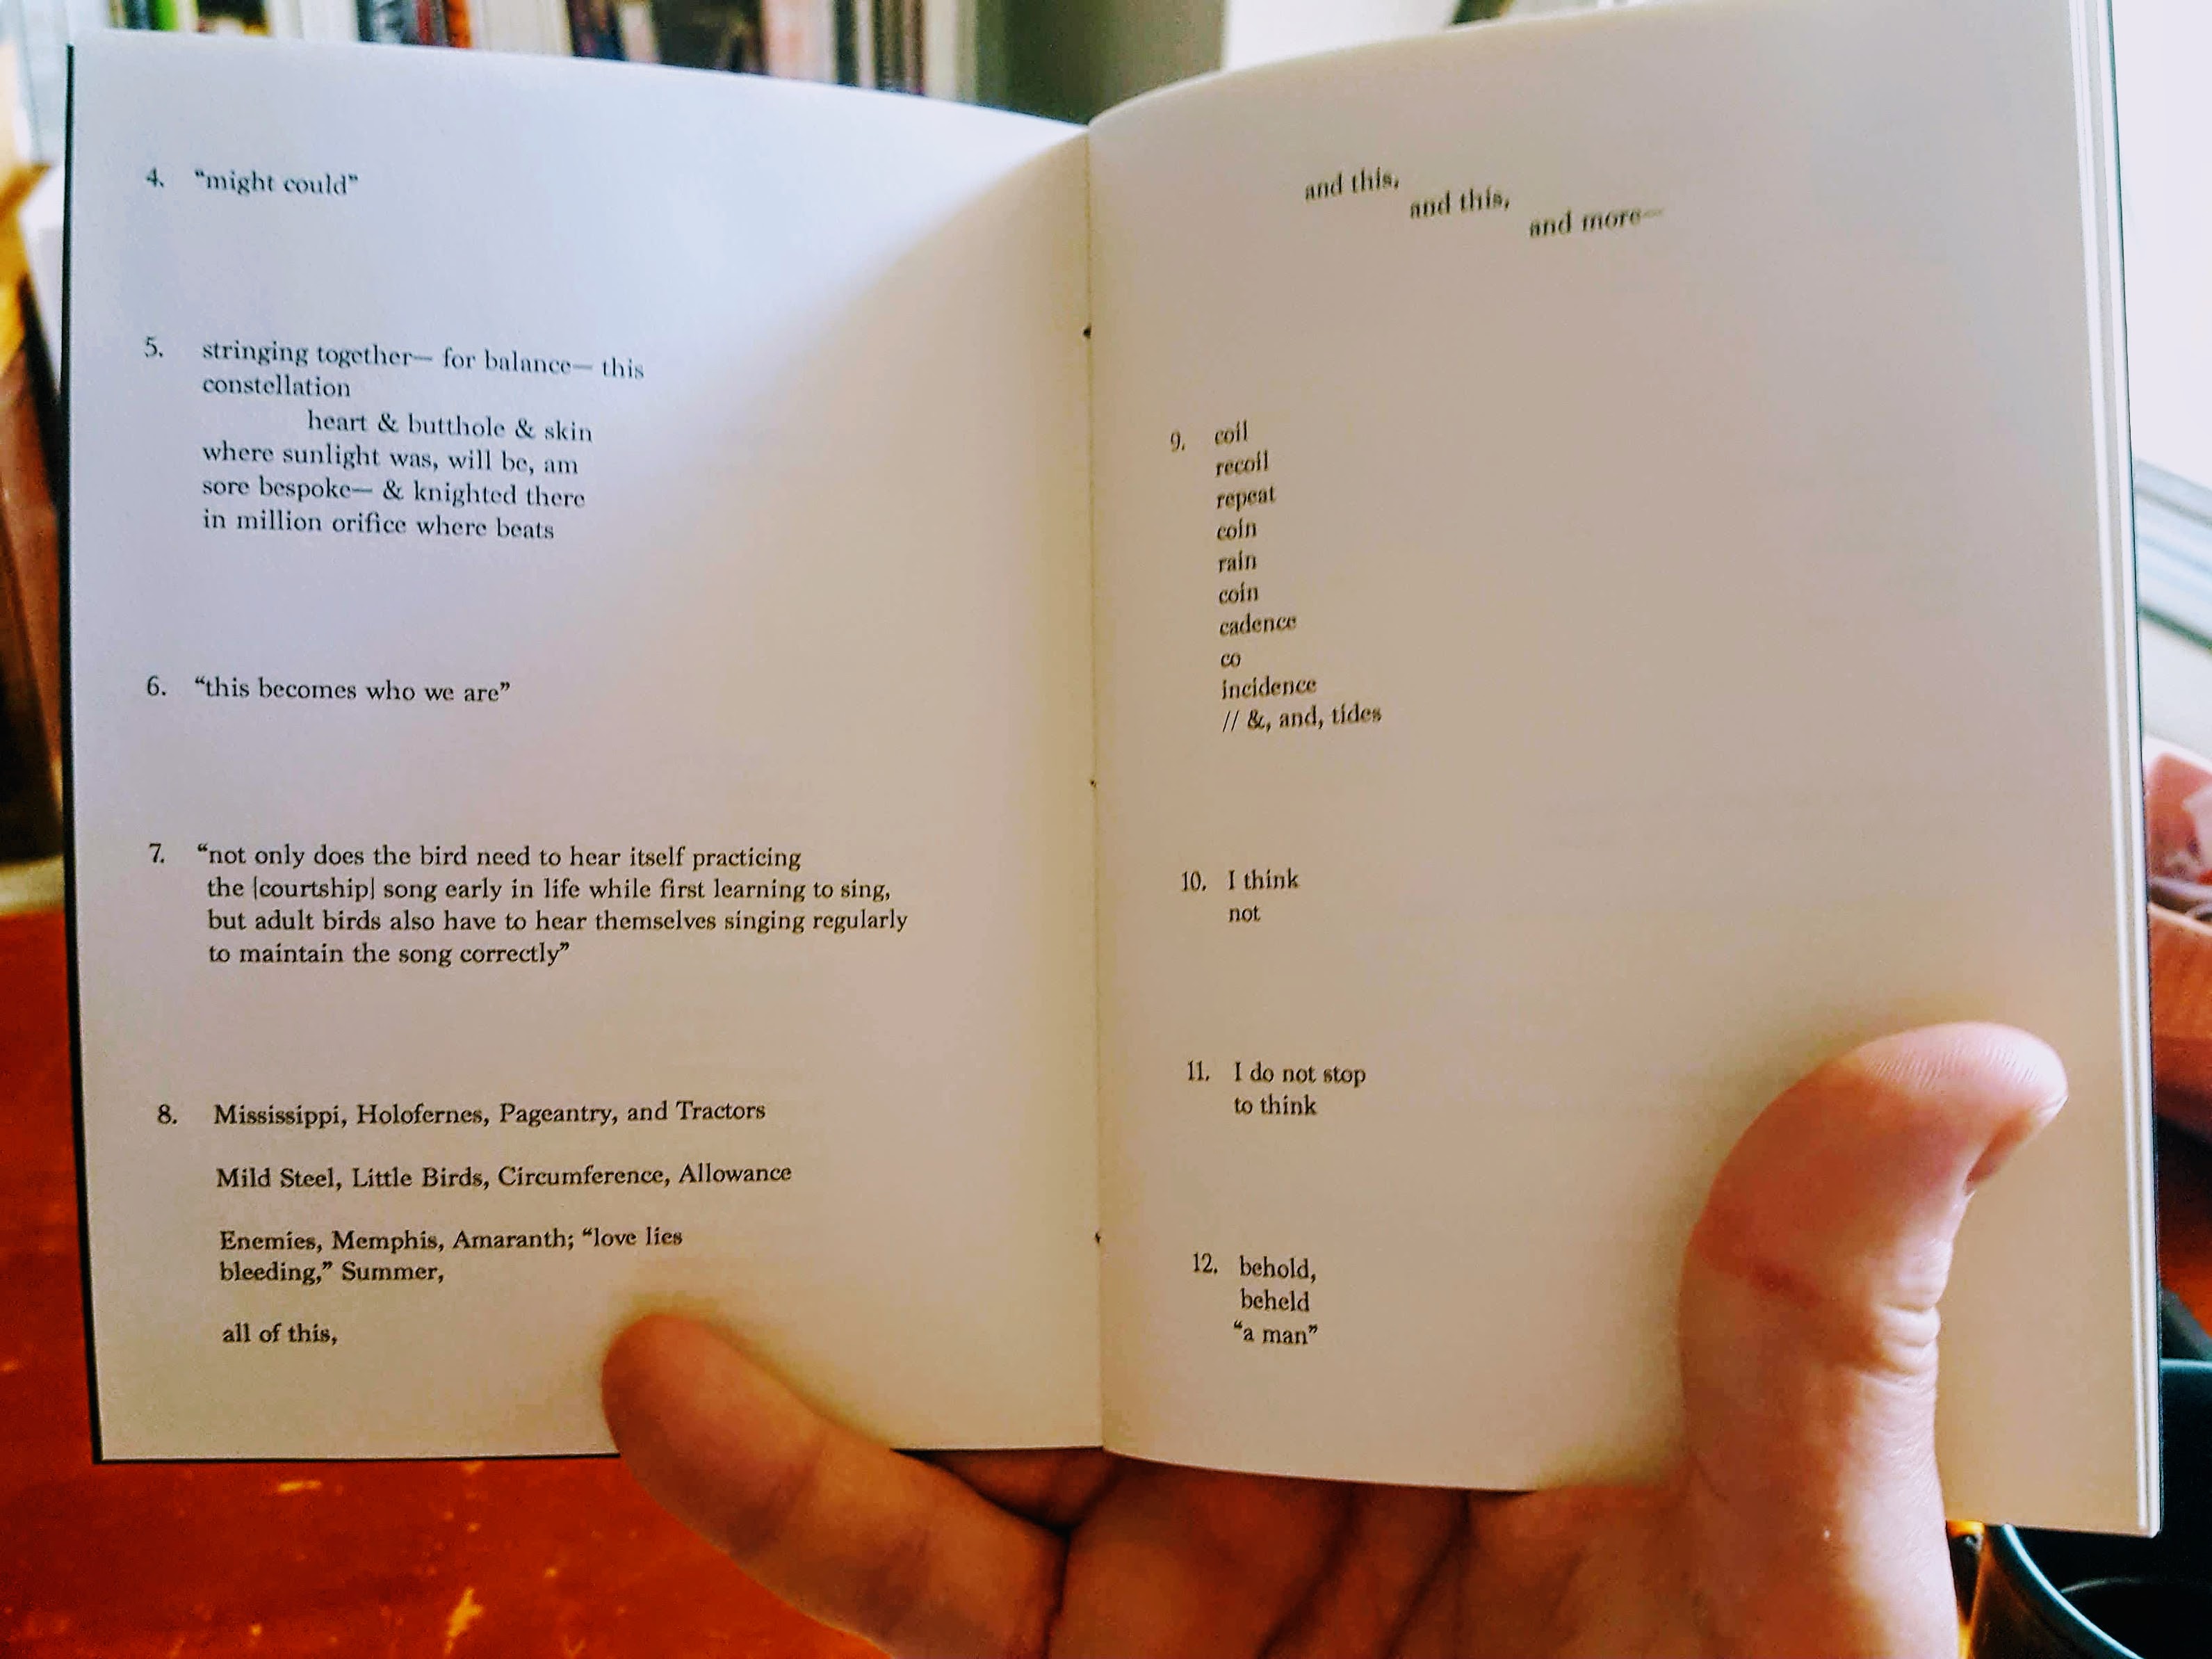 4. “might could”
5. stringing together— for balance— this
constellation
heart & butthole & skin
where sunlight was, will be, am
sore bespoke— & knighted there
in million orifice where beats
6. “this becomes who we are”
7. “not only does the bird need to hear itself practicing
the [courtship] song early in life while first learning to sing,
but adult birds also have to hear themselves singing regularly
to maintain the song correctly”
8. Mississippi, Holofernes, Pageantry, and Tractors
Mild Steel, Little Birds, Circumference, Allowance
Enemies, Memphis, Amaranth; “love lies
bleeding,” Summer,
all of this,
and this,
and this,
and more—
9. coil
recoil
repeat
coin
rain
coin
cadence
co
incidence
// &, and, tides
10. I think
not
11. I do not stop
to think
12. behold,
beheld
“a man”